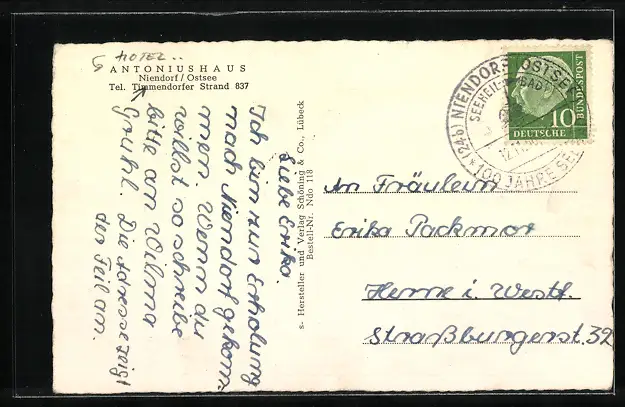 HOTEL..
ANTONIUSHAUS
Niendorf / Ostsee
Tel. Timmendorfer Strand 837
Liebe Erika.
Ich bin zur Erholung
nach Niendorf gekom-
men. Wenn du
willst so schreibe
bitte an Wilma
Gruhl. Die Adresse zeigt
der Feil am.
s- Hersteller und Verlag Schöning & Co., Lübeck
Bestell-Nr. Ndo 118
(24b) NIENDORF OSTSEE
SEEHEIL-
BAD
12.11.
100 JAHRE SEE
10
DEUTSCHE
BUNDESPOST
An Fräulein
Erika Packmor
Herne i. Westf.
Straßburgerst. 32